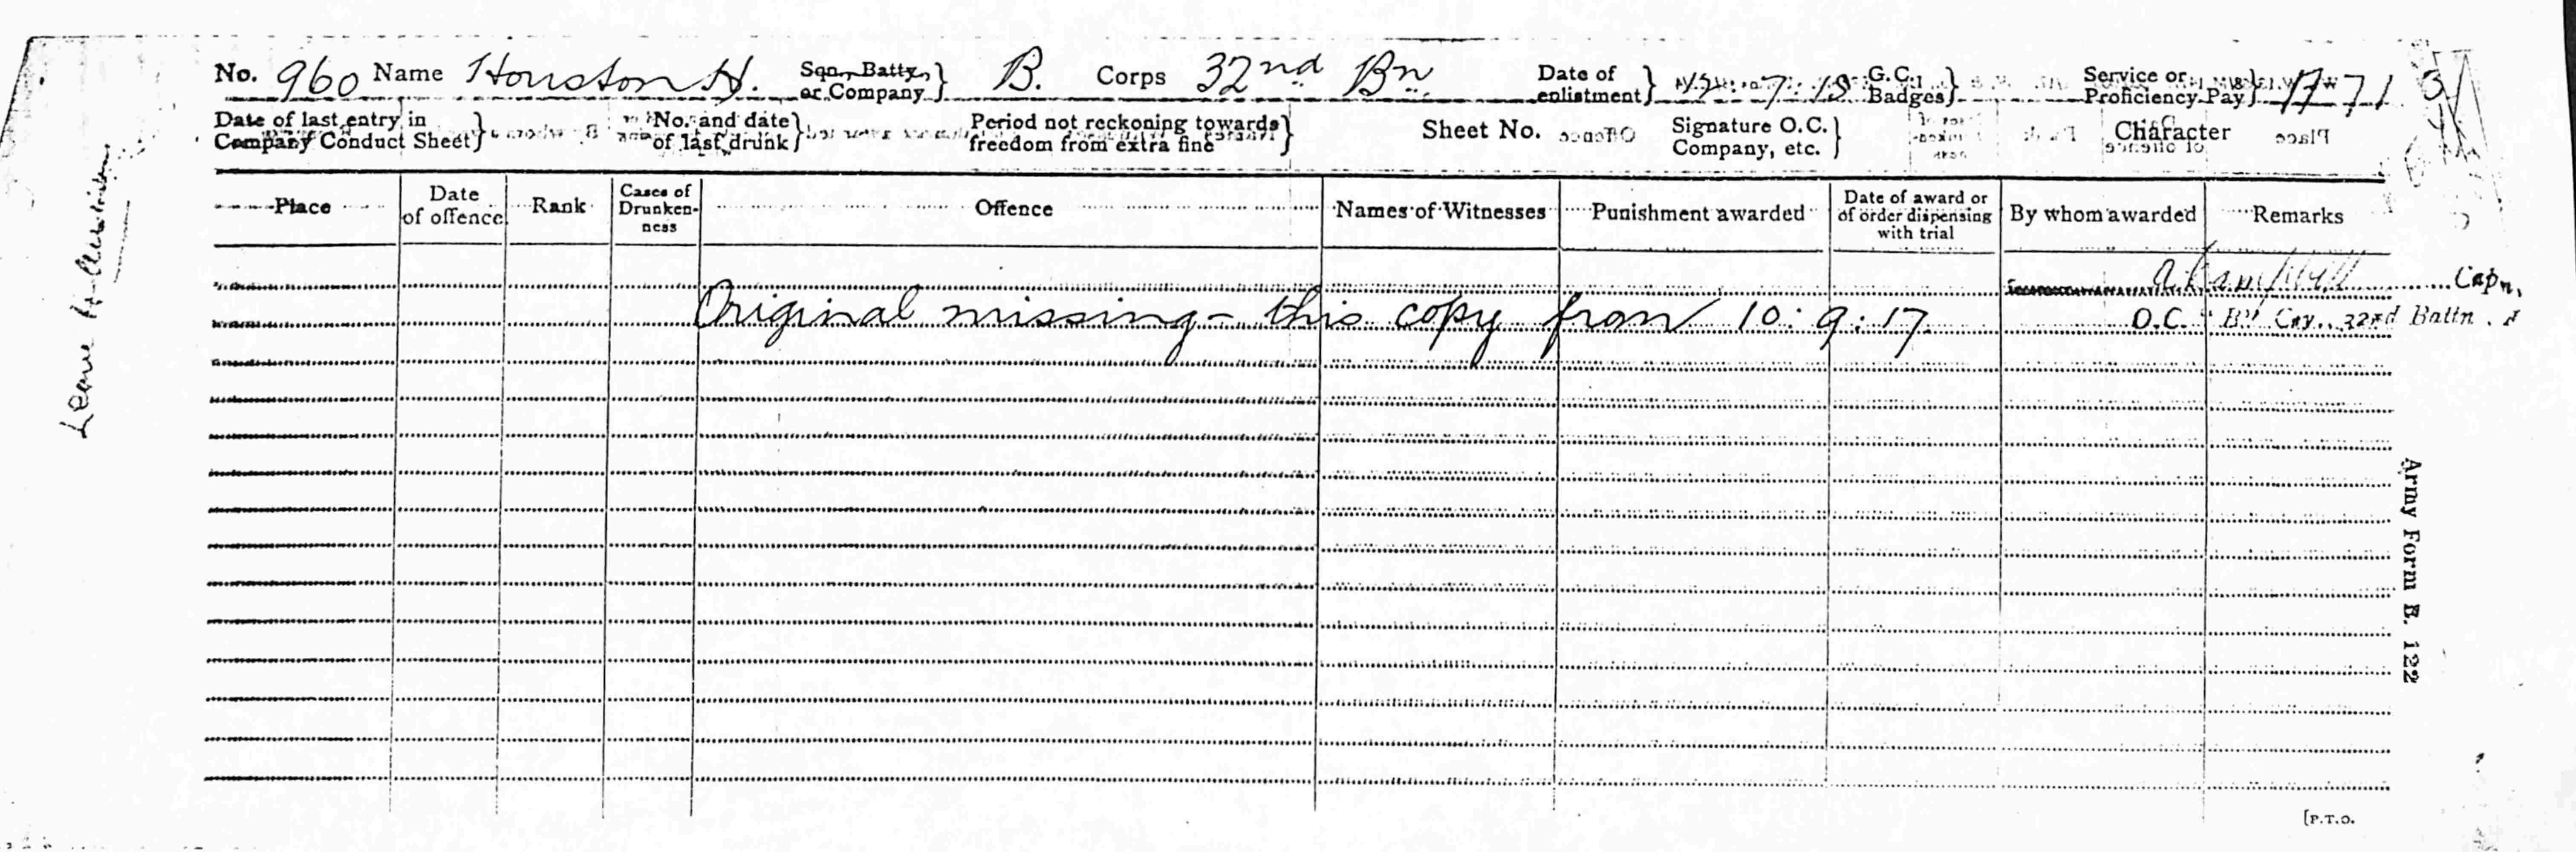 No. 960 Name Houston H. Sqn., Batty., or Company } B. Corps 32nd Bn. Date of enlistment } 12 . 7 . 15 G.C. Badges } Service or Proficiency Pay }
Date of last entry in Company Conduct Sheet } No. and date of last drunk } Period not reckoning towards freedom from extra fine } Sheet No. Signature O.C. Company, etc. } Character
Place Date of offence Rank Cases of Drunken-ness Offence Names of Witnesses Punishment awarded Date of award or of order dispensing with trial By whom awarded Remarks
Capn,
Original missing - this copy from 10 : 9 : 17 O.C. "B" Coy. 32nd Battn.
Army Form B. 122
[P.T.O.